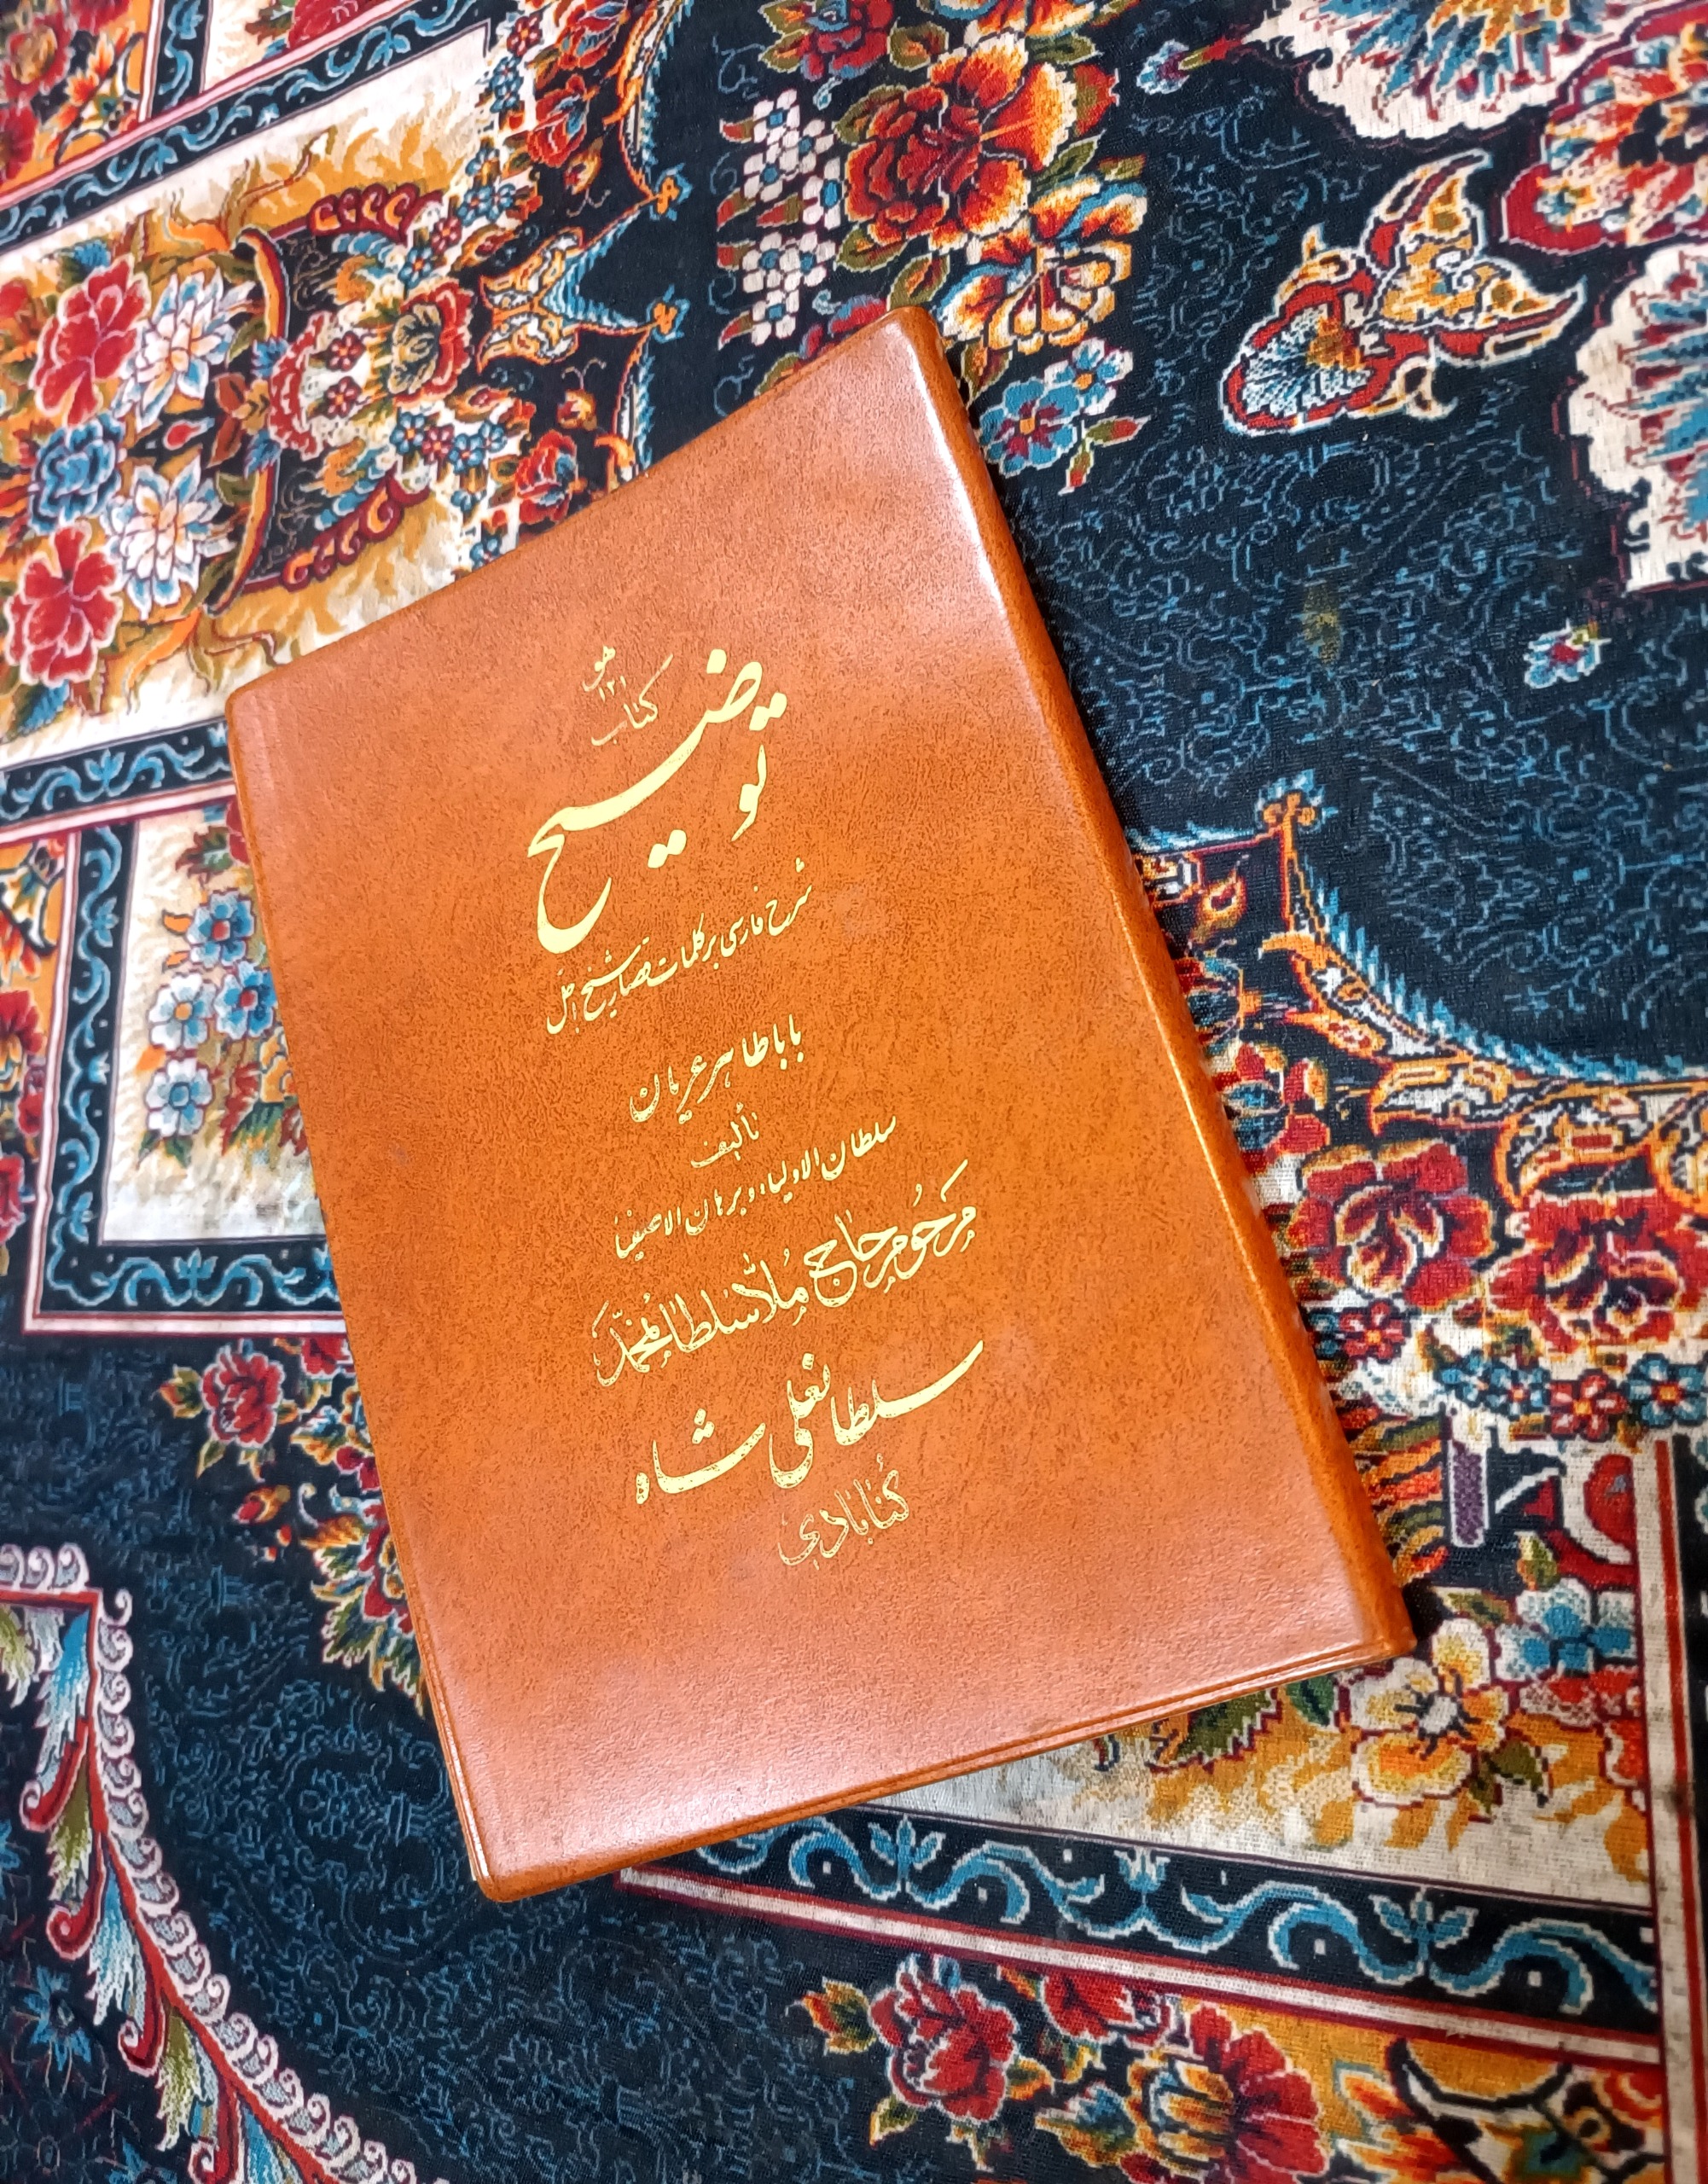 هو
۱۲۱
کتاب
توضیح
شرح فارسی بر کلمات قصار شیخ اجل
باباطاهر عریان
تألیف
سلطان الاولیاء و برهان الاصفیاء
مرحوم حاج ملا سلطانمحمد
سلطانعلی شاه
گنابادی